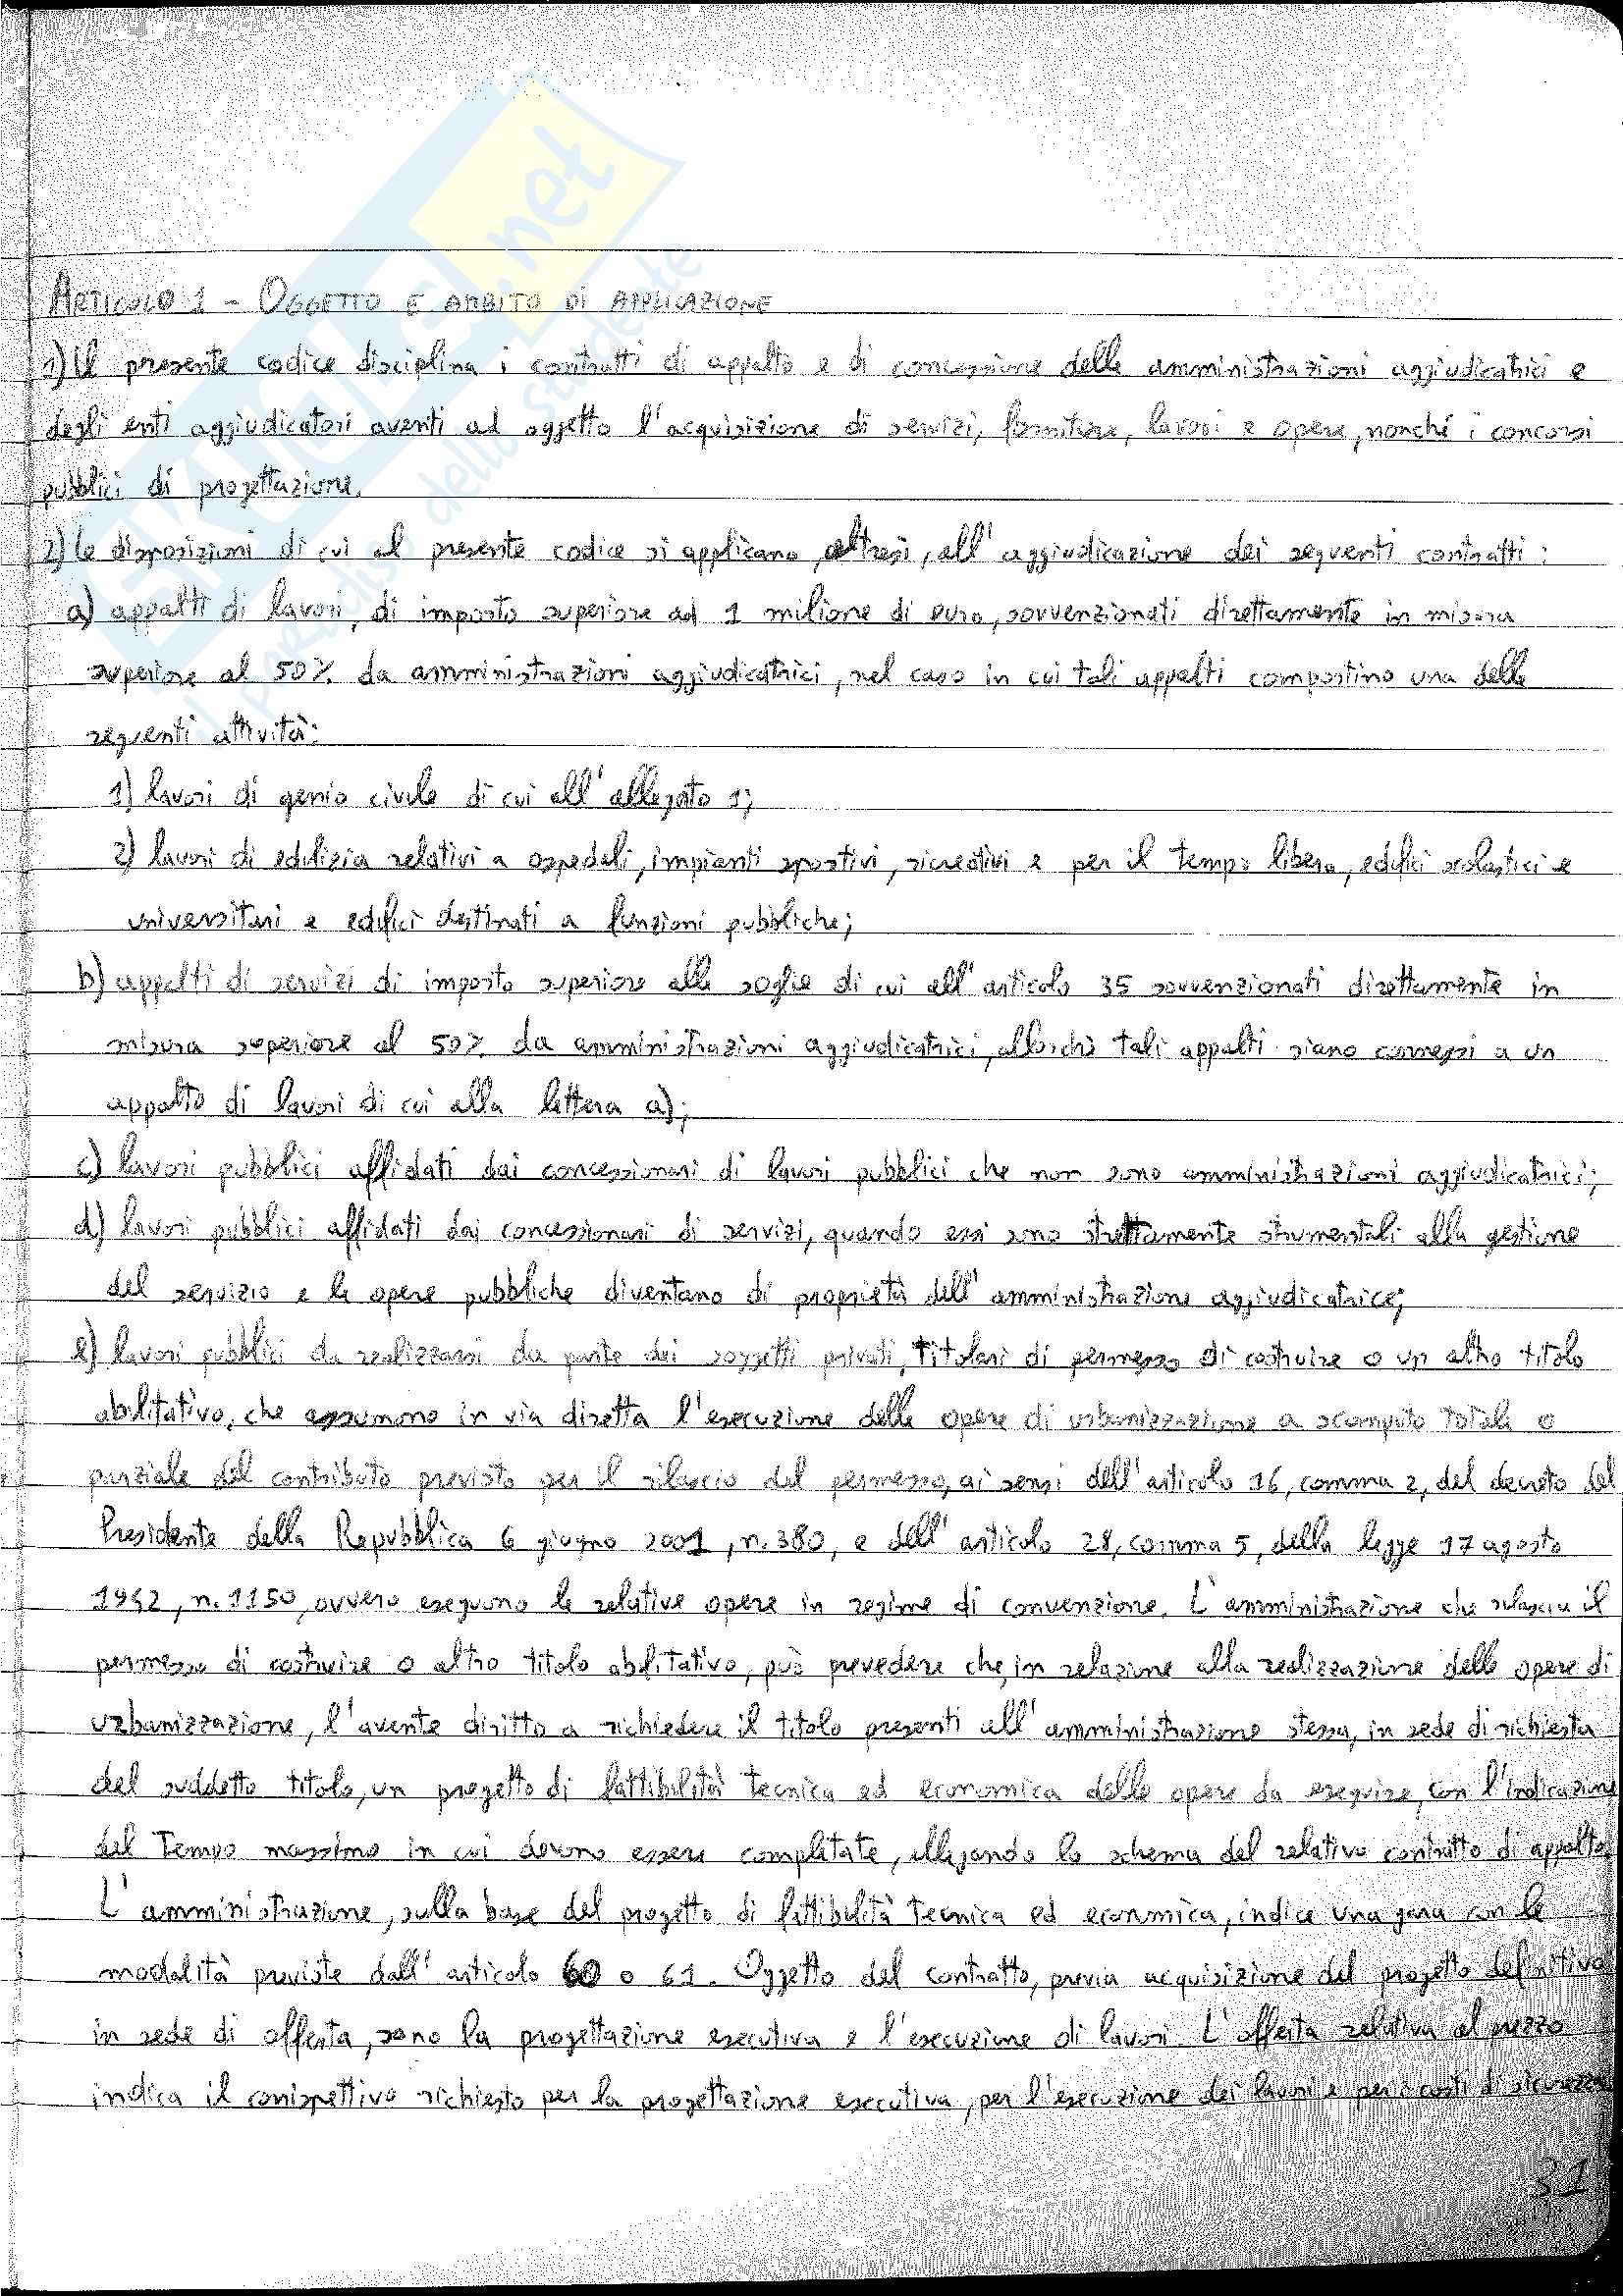 ARTICOLO 1 - OGGETTO E AMBITO DI APPLICAZIONE
1) Il presente codice disciplina i contratti di appalto e di concessione delle amministrazioni aggiudicatrici e
degli enti aggiudicatori aventi ad oggetto l'acquisizione di servizi, forniture, lavori e opere, nonché i concorsi
pubblici di progettazione.
2) Le disposizioni di cui al presente codice si applicano, altresì, all'aggiudicazione dei seguenti contratti:
a) appalti di lavori, di importo superiore ad 1 milione di euro, sovvenzionati direttamente in misura
superiore al 50% da amministrazioni aggiudicatrici, nel caso in cui tali appalti comportino una delle
seguenti attività:
1) lavori di genio civile di cui all'allegato 1;
2) lavori di edilizia relativi a ospedali, impianti sportivi, ricreativi e per il tempo libero, edifici scolastici e
universitari e edifici destinati a funzioni pubbliche;
b) appalti di servizi di importo superiore alle soglie di cui all'articolo 35 sovvenzionati direttamente in
misura superiore al 50% da amministrazioni aggiudicatrici, allorchè tali appalti siano connessi a un
appalto di lavori di cui alla lettera a);
c) lavori pubblici affidati dai concessionari di lavori pubblici che non sono amministrazioni aggiudicatrici;
d) lavori pubblici affidati dai concessionari di servizi, quando essi sono strettamente strumentali alla gestione
del servizio e le opere pubbliche diventano di proprietà dell'amministrazione aggiudicatrice;
e) lavori pubblici da realizzarsi da parte dei soggetti privati, titolari di permesso di costruire o un altro titolo
abilitativo, che assumono in via diretta l'esecuzione delle opere di urbanizzazione a scomputo totale o
parziale del contributo previsto per il rilascio del permesso, ai sensi dell'articolo 16, comma 2, del decreto del
Presidente della Repubblica 6 giugno 2001, n. 380, e dell'articolo 28, comma 5, della legge 17 agosto
1942, n. 1150, ovvero eseguono le relative opere in regime di convenzione. L'amministrazione che rilascia il
permesso di costruire o altro titolo abilitativo, può prevedere che, in relazione alla realizzazione delle opere di
urbanizzazione, l'avente diritto a richiedere il titolo presenti all'amministrazione stessa, in sede di richiesta
del suddetto titolo, un progetto di fattibilità tecnica ed economica delle opere da eseguire, con l'indicazione
del tempo massimo in cui devono essere completate, allegando lo schema del relativo contratto di appalto.
L'amministrazione, sulla base del progetto di fattibilità tecnica ed economica, indice una gara con le
modalità previste dall'articolo 60 o 61. Oggetto del contratto, previa acquisizione del progetto definitivo
in sede di offerta, sono la progettazione esecutiva e l'esecuzione di lavori. L'offerta relativa al prezzo
indica il corrispettivo richiesto per la progettazione esecutiva, per l'esecuzione dei lavori e per i costi di sicurezza
31
SKUOLA.net
il paradiso dello studente